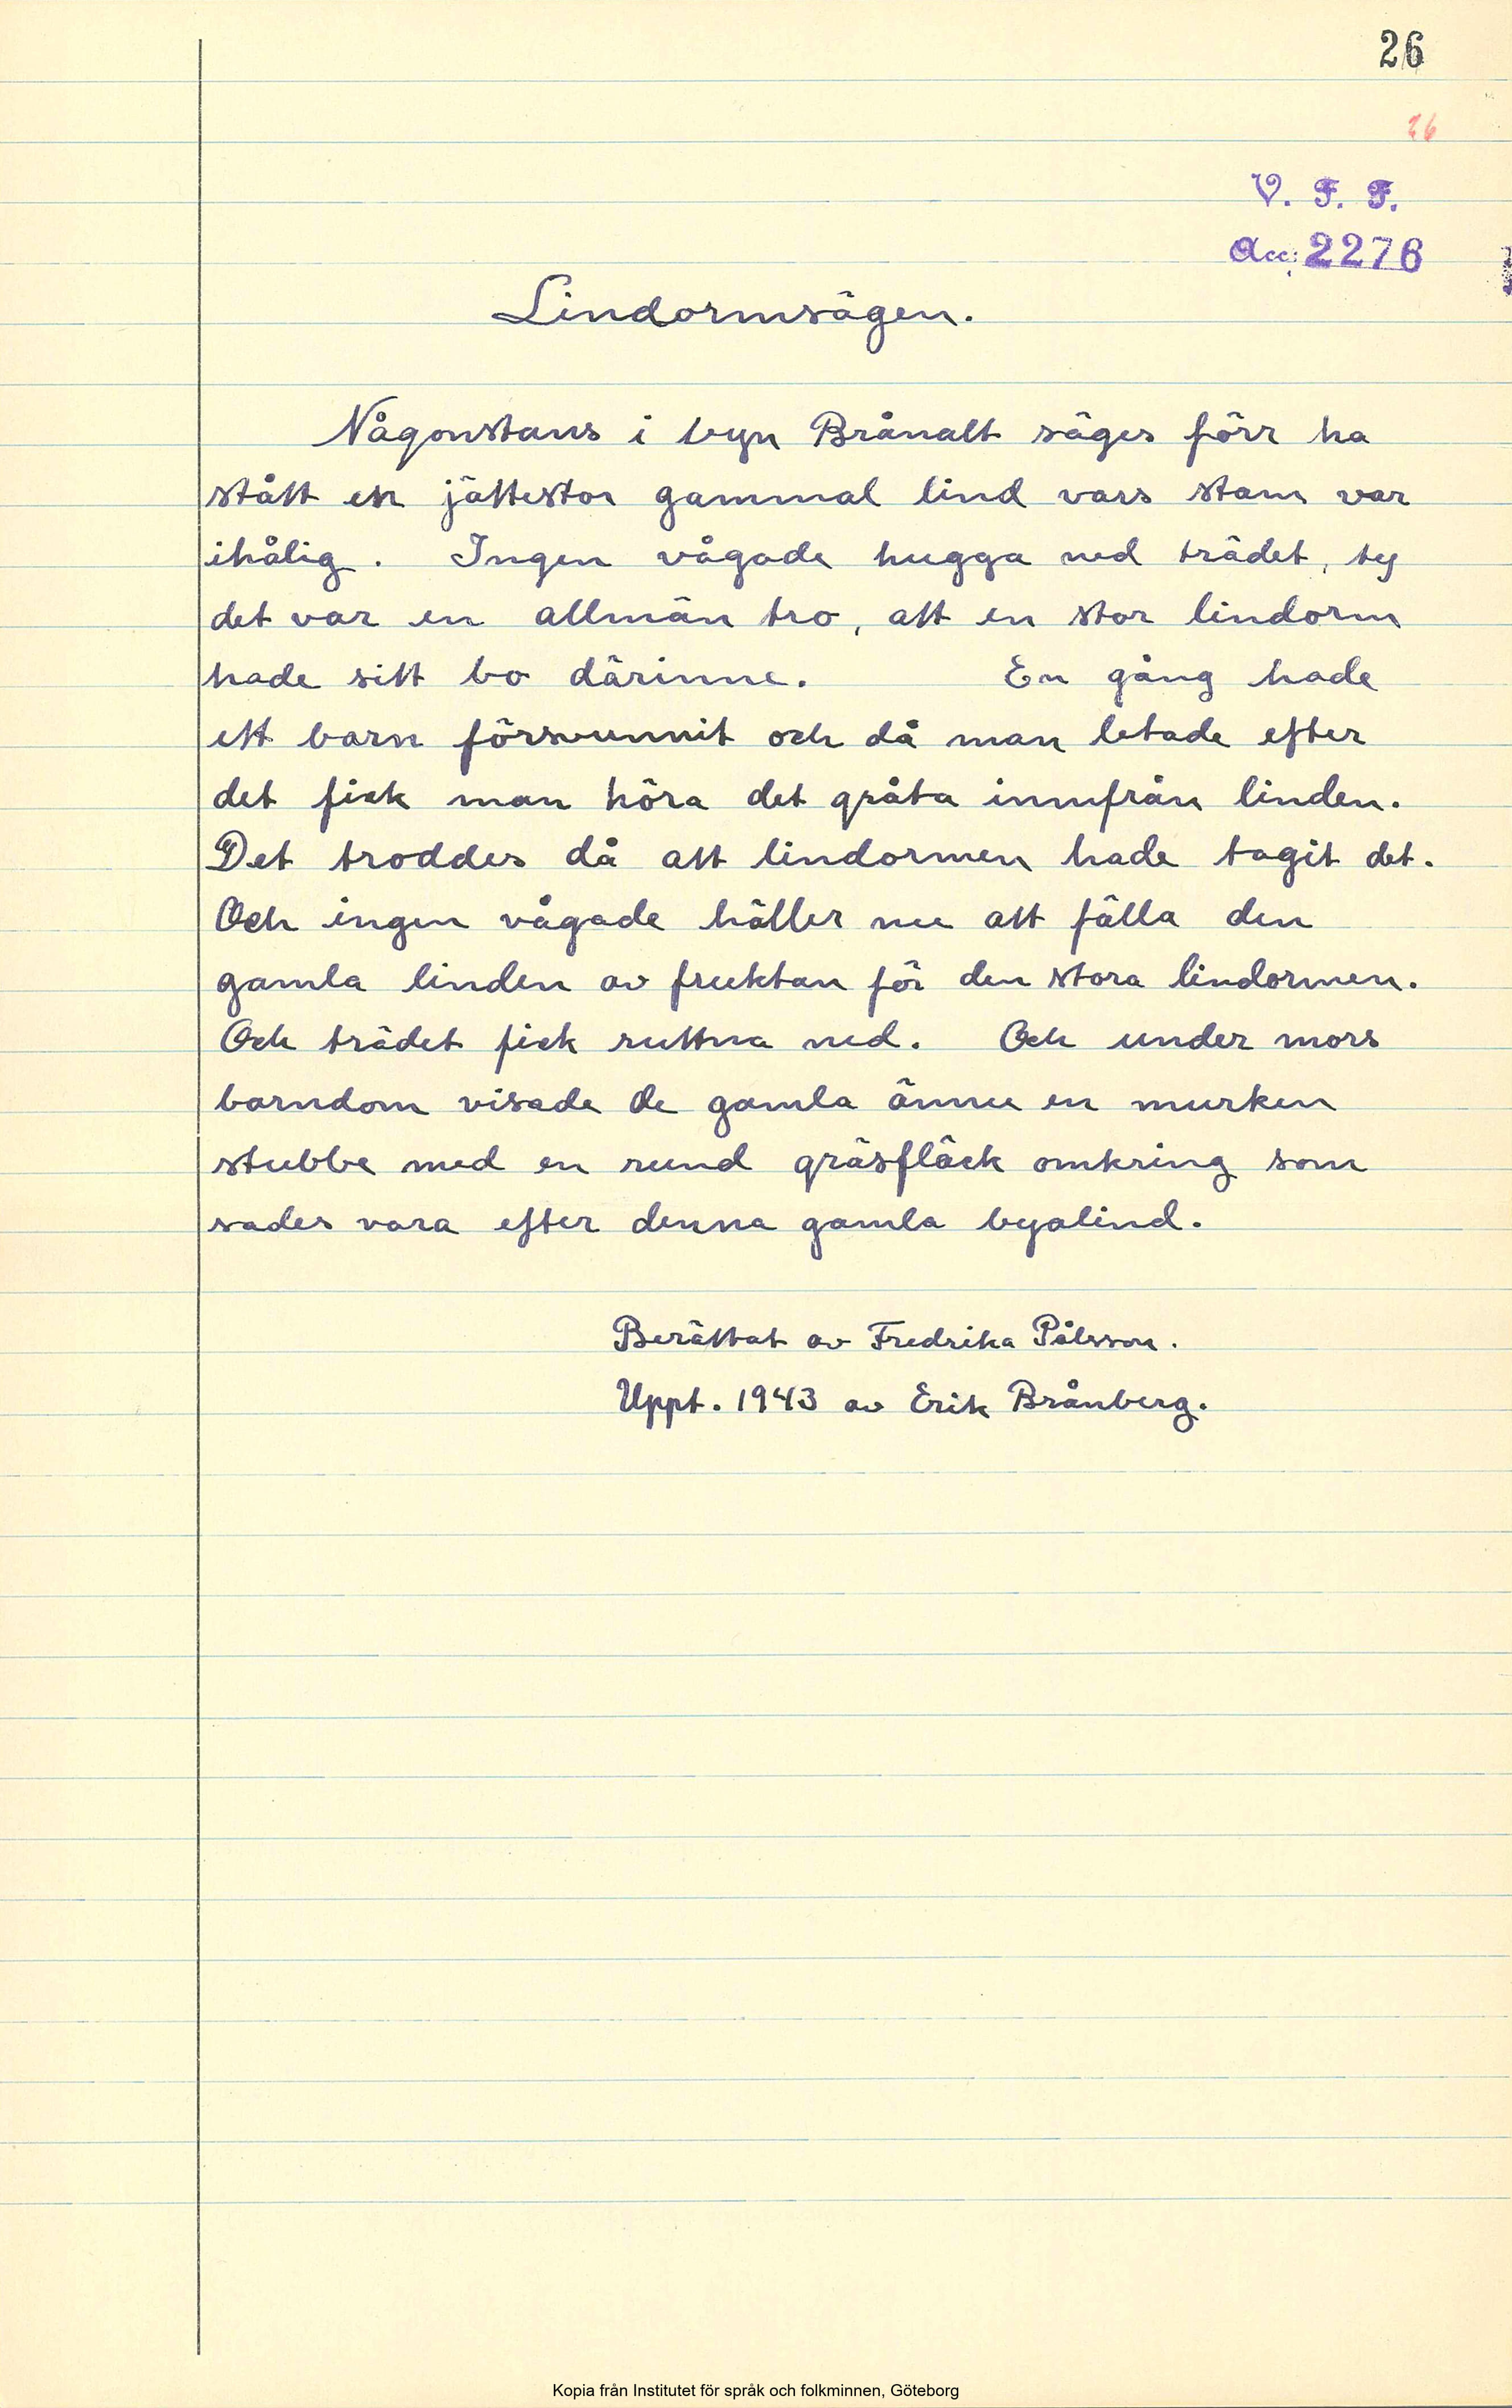 26
26
V. F. F.
Acc: 2276
Lindormsägen.
Någonstans i byn Brånalt säges förr ha
stått en jättestor gammal lind vars stam var
ihålig. Ingen vågade hugga ned trädet, ty
det var en allmän tro, att en stor lindorm
hade sitt bo därinne. En gång hade
ett barn försvunnit och då man letade efter
det fick man höra det gråta innifrån linden.
Det troddes då att lindormen hade tagit det.
Och ingen vågade häller nu att fälla den
gamla linden av fruktan för den stora lindormen.
Och trädet fick ruttna ned. Och under mors
barndom visade de gamla ännu en murken
stubbe med en rund gräsfläck omkring som
sades vara efter denna gamla byalind.
Berättat av Fredrika Pålsson.
Uppt. 1943 av Erik Brånberg.
Kopia från Institutet för språk och folkminnen, Göteborg